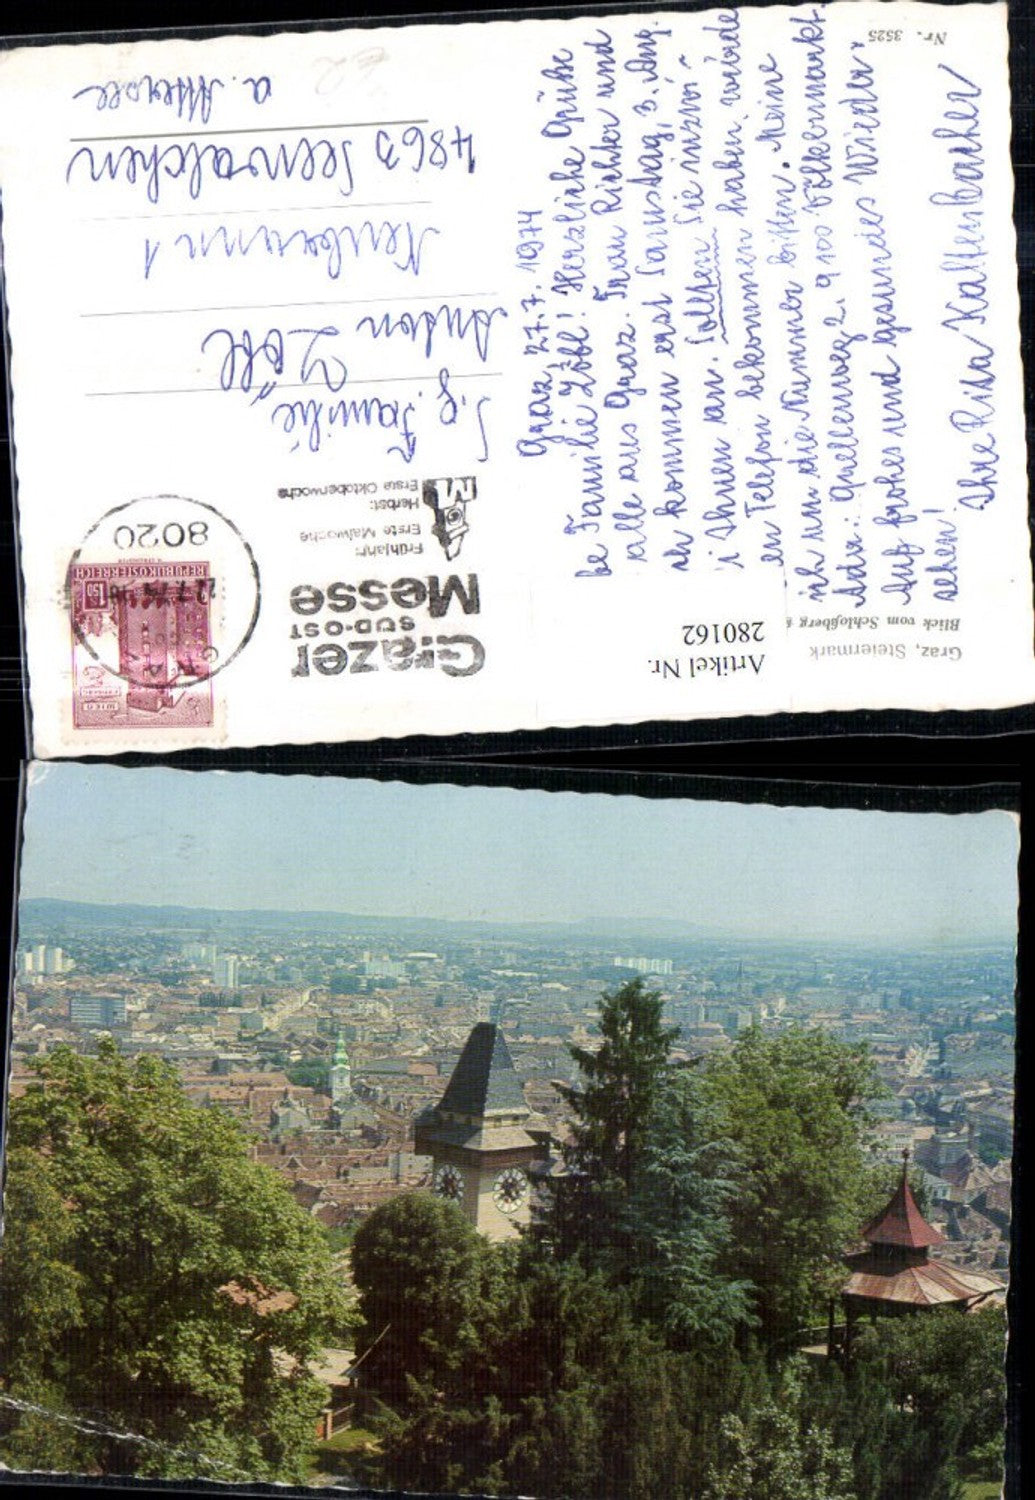 Nr. 3525
Graz, Steiermark
Blick vom Schloßberg
Artikel Nr.
280162
Graz, 27.7.1974
Familie Zöbl! Herzliche Grüße
alle aus Graz. Frau Richter und
ich kommen erst Samstag, 3. Aug.
Ihnen an. Sollten Sie inzwi-
en Telefon bekommen haben würde
ich um die Nummer bitten. Meine
Adr.: Quellenweg 2, 9100 Völkermarkt.
Auf frohes und gesundes Wieder-
sehen!
Ihre Rita Kaltenbacher
Grazer
SÜD-OST
Messe
Frühjahr:
Erste Maiwoche
Herbst:
Erste Oktoberwoche
8020
GRAZ
REPUBLIK ÖSTERREICH
1.50
S.g. Familie
Anton Zöbl
Neubrunn 1
4863 Seewalchen
a. Attersee